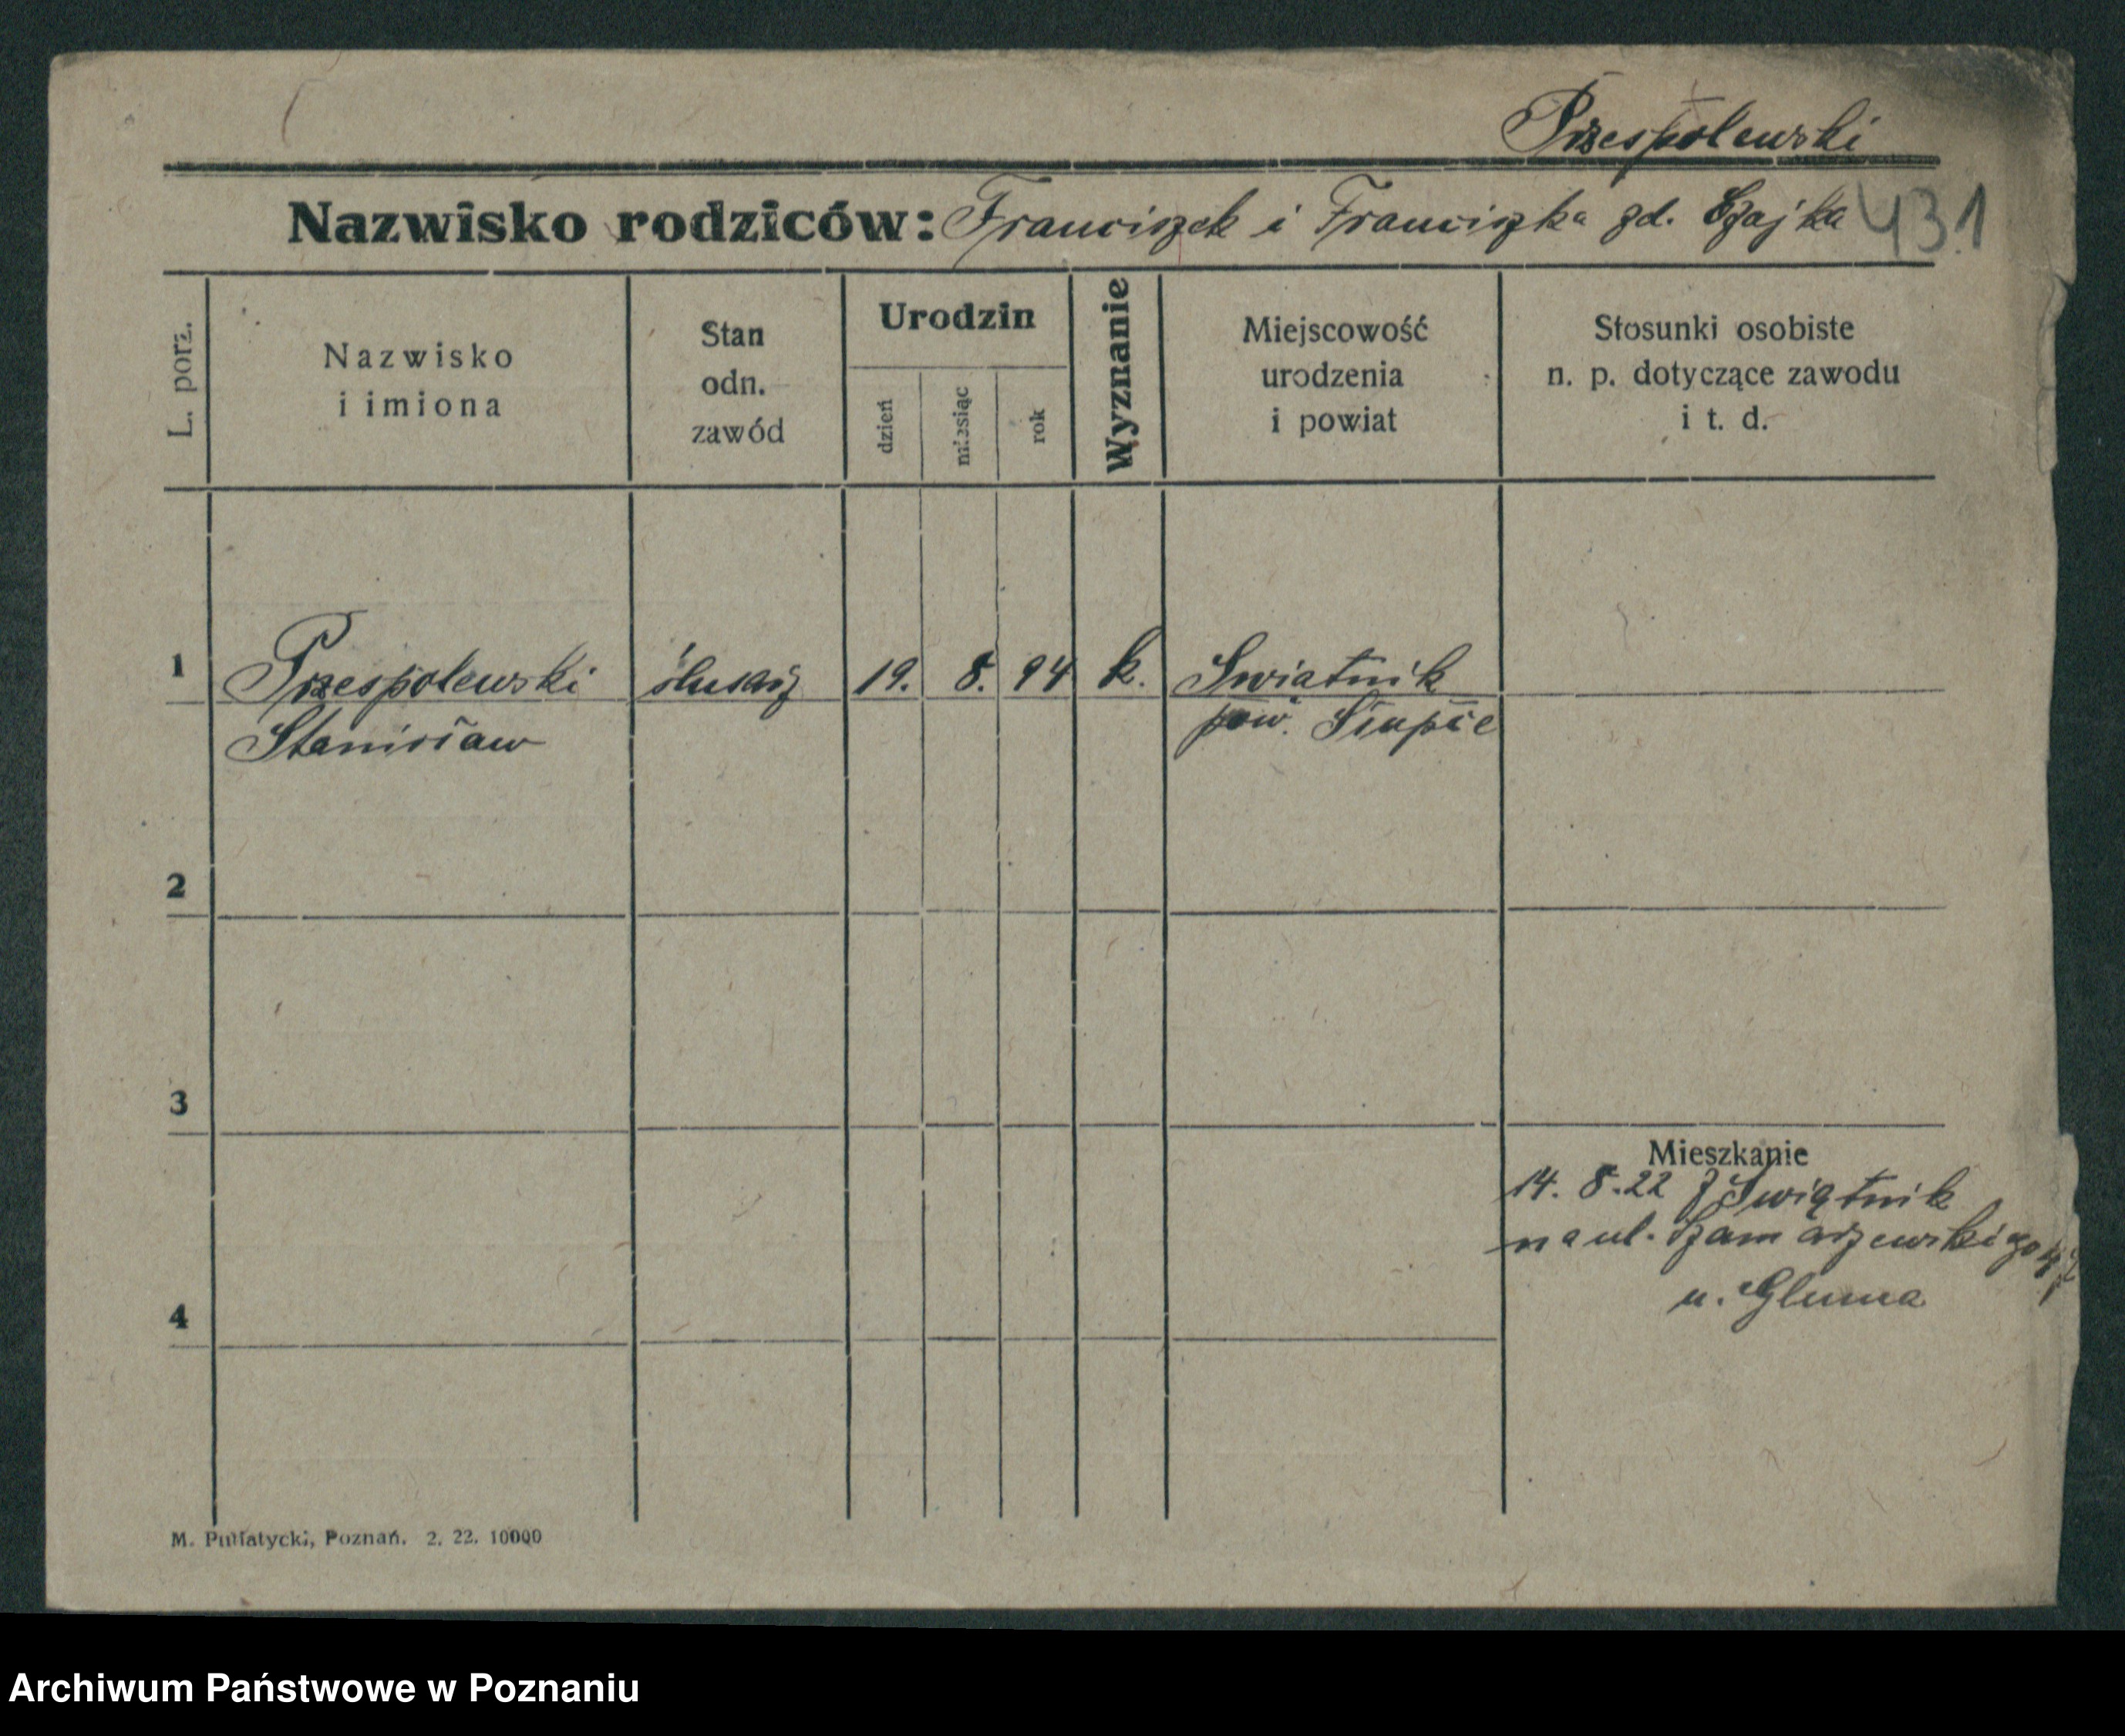 Przespolewski
Nazwisko rodziców: Franciszek i Franciszka zd. Czajka
431
L. porz.
Nazwisko
i imiona
Stan
odn.
zawód
Urodzin
dzień
miesiąc
rok
Wyznanie
Miejscowość
urodzenia
i powiat
Stosunki osobiste
n. p. dotyczące zawodu
i t. d.
1 Przespolewski 19. 8. 94 k. Swiatnik
Stanisław pow. Słupce
2
3
Mieszkanie
14. 8. 22 z Swiątnik
na ul. Szamarzewskiego
u. Gluma
4
M. Putiatycki, Poznań. 2. 22. 10000
Archiwum Państwowe w Poznaniu